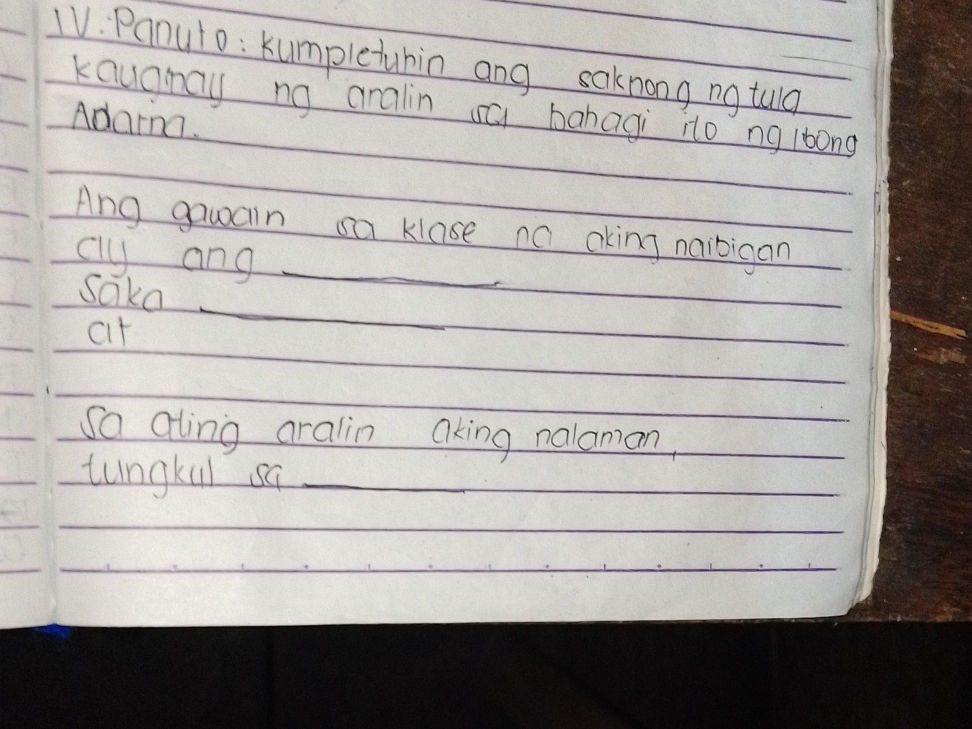 IV. Panuto: kumpletuhin ang saknong ng tula
kaugnay ng aralin sa bahagi ito ng Ibong
Adarna.
Ang gawain sa klase na aking naibigan
ay ang __________
saka __________
at
Sa ating aralin aking nalaman,
tungkul sa __________